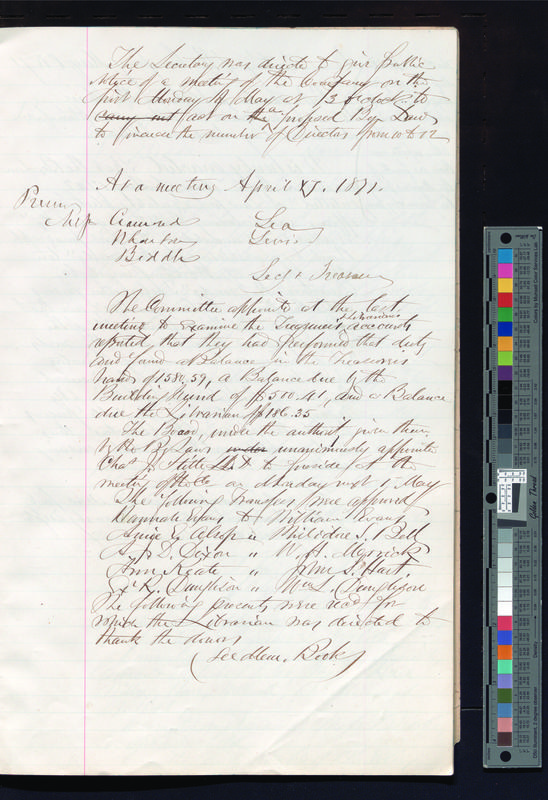 The Secretary was directed to give public
Notice of a meeting of the Company on the
first Monday of May at 3 o'clock to
carry out act on the a proposed By Law
to increase the number of Directors from 10 to 12
At a meeting April 27. 1871.
Present
Messrs Cramond Lea
Wharton Lewis
Biddle
Secy & Treasurer
The Committee appointed at the last
meeting to examine the Treasurers & Librarians accounts
reported that they had performed that duty
and found a Balance in the Treasurers
hands of 1580.59, a Balance due by the
Building Fund of $500.41, and a Balance
due the Librarian of $186.35
The Board, under the authority given them
by the By Laws under unanimously appointed
Chas J. Stille to preside at the
meeting of the Co on Monday next 1 May
The following transfers were approved
Hannah Evans to William Evans
Alsop " Philidore S. Bell
S. D. Dixon " W. H. Merrick
John Keate " John S. Hart
R. Dunglison " Thos. L. Dunglison
The following presents were recd for
which the Librarian was directed to
thank the donors
(See Mem. Book)